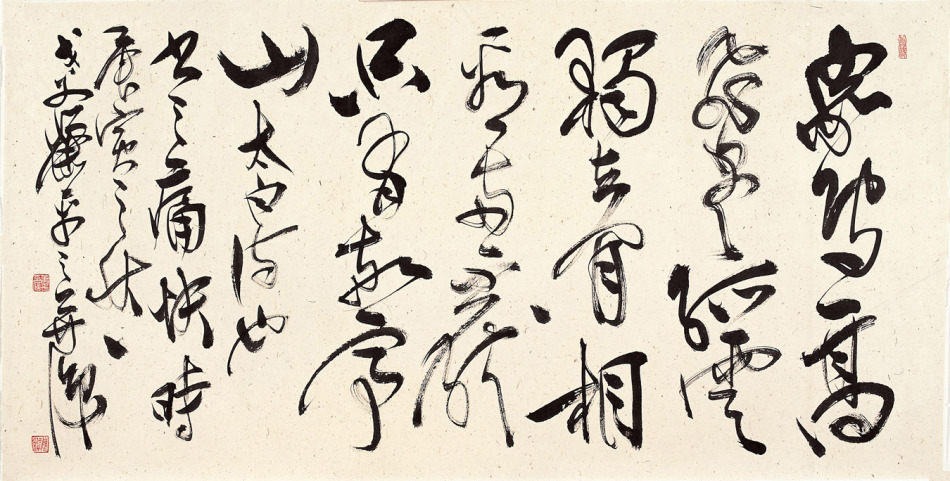 眾鸟高
飛盡孤雲
獨去閒相
看兩不厭
只有敬亭
山 太白诗也
书之痛快時
庚寅之秋